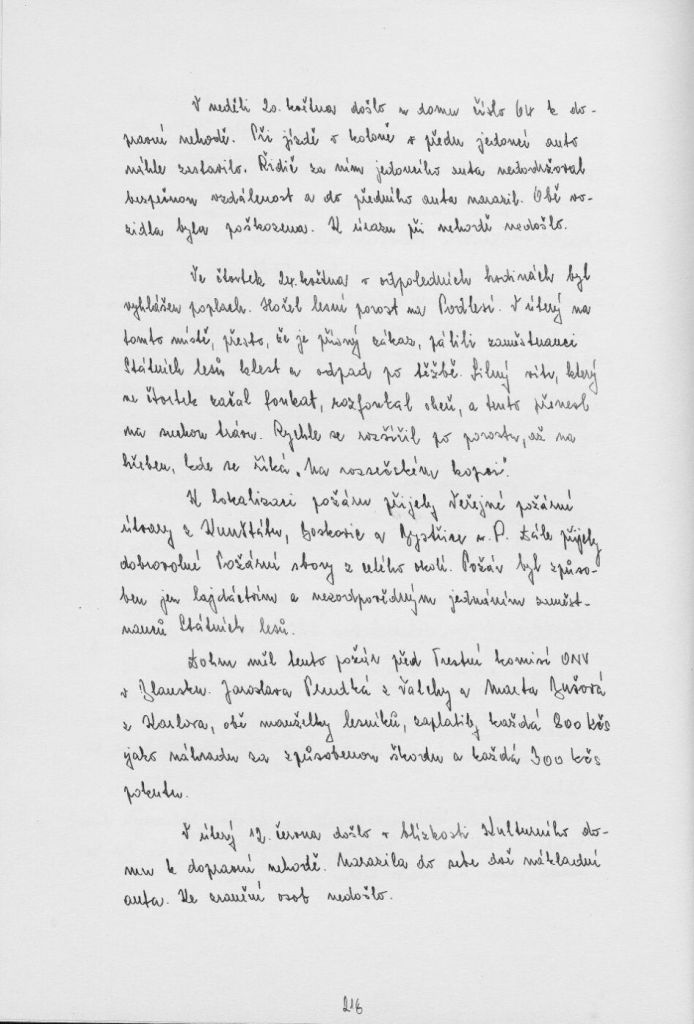 V neděli 20. května došlo u domu číslo 64 k do-
pravní nehodě. Při jízdě v koloně v předu jedoucí auto
náhle zastavilo. Řidič za ním jedoucího auta nedodržoval
bezpečnou vzdálenost a do předního auta narazil. Obě vo-
zidla byla poškozena. K úrazu při nehodě nedošlo.
Ve čtvrtek 24. května v odpoledních hodinách byl
vyhlášen poplach. Hořel lesní porost na Podlesí. V úterý na
tomto místě, přesto, že je přísný zákaz, pálili zaměstnanci
Státních lesů klest a odpad po těžbě. Silný vítr, který
ve čtvrtek začal foukat, rozfoukal oheň, a tento přenesl
na suchou trávu. Rychle se rozšířil po porostu, až na
hřeben, kde se říká „Na rozsečském kopci".
K lokalizaci požáru přijely Veřejné požární
útvary z Kunštátu, Boskovic a Bystřice n. P. Dále přijely
dobrovolné Požární sbory z celého okolí. Požár byl způso-
ben jen lajdáctvím a nezodpovědným jednáním zaměst-
nanců Státních lesů.
Dohru měl tento požár před Trestní komisí ONV
v Blansku. Jaroslava z a Marta
z Karlova, obě manželky lesníků, zaplatily každá 800 kčs
jako náhradu za způsobenou škodu a každá 300 kčs
pokutu.
V úterý 12. června došlo v blízkosti Kulturního do-
mu k dopravní nehodě. Narazila do sebe dvě nákladní
auta. Ke zranění osob nedošlo.
216